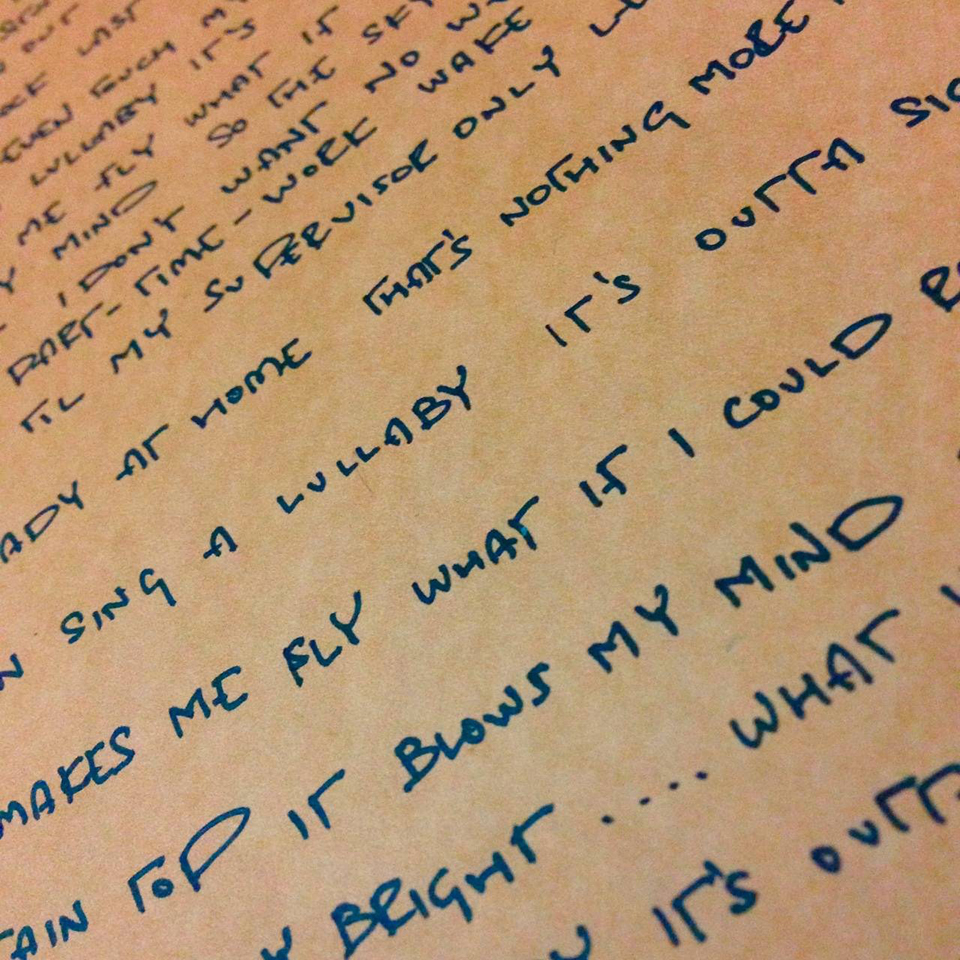 LAST
EVEN TOUCH
LULLABY IT'S
ME FLY WHAT IF
MY MIND SO THE SKY
I DON'T WANT NO
PART-TIME-WORK WAKE
TIL MY SUPERVISOR ONLY
AT HOME THAT'S NOTHING MORE
SING A LULLABY IT'S OUTTA
MAKES ME FLY WHAT IF I COULD
TOP IT BLOWS MY MIND
BRIGHT .... WHAT
IT'S